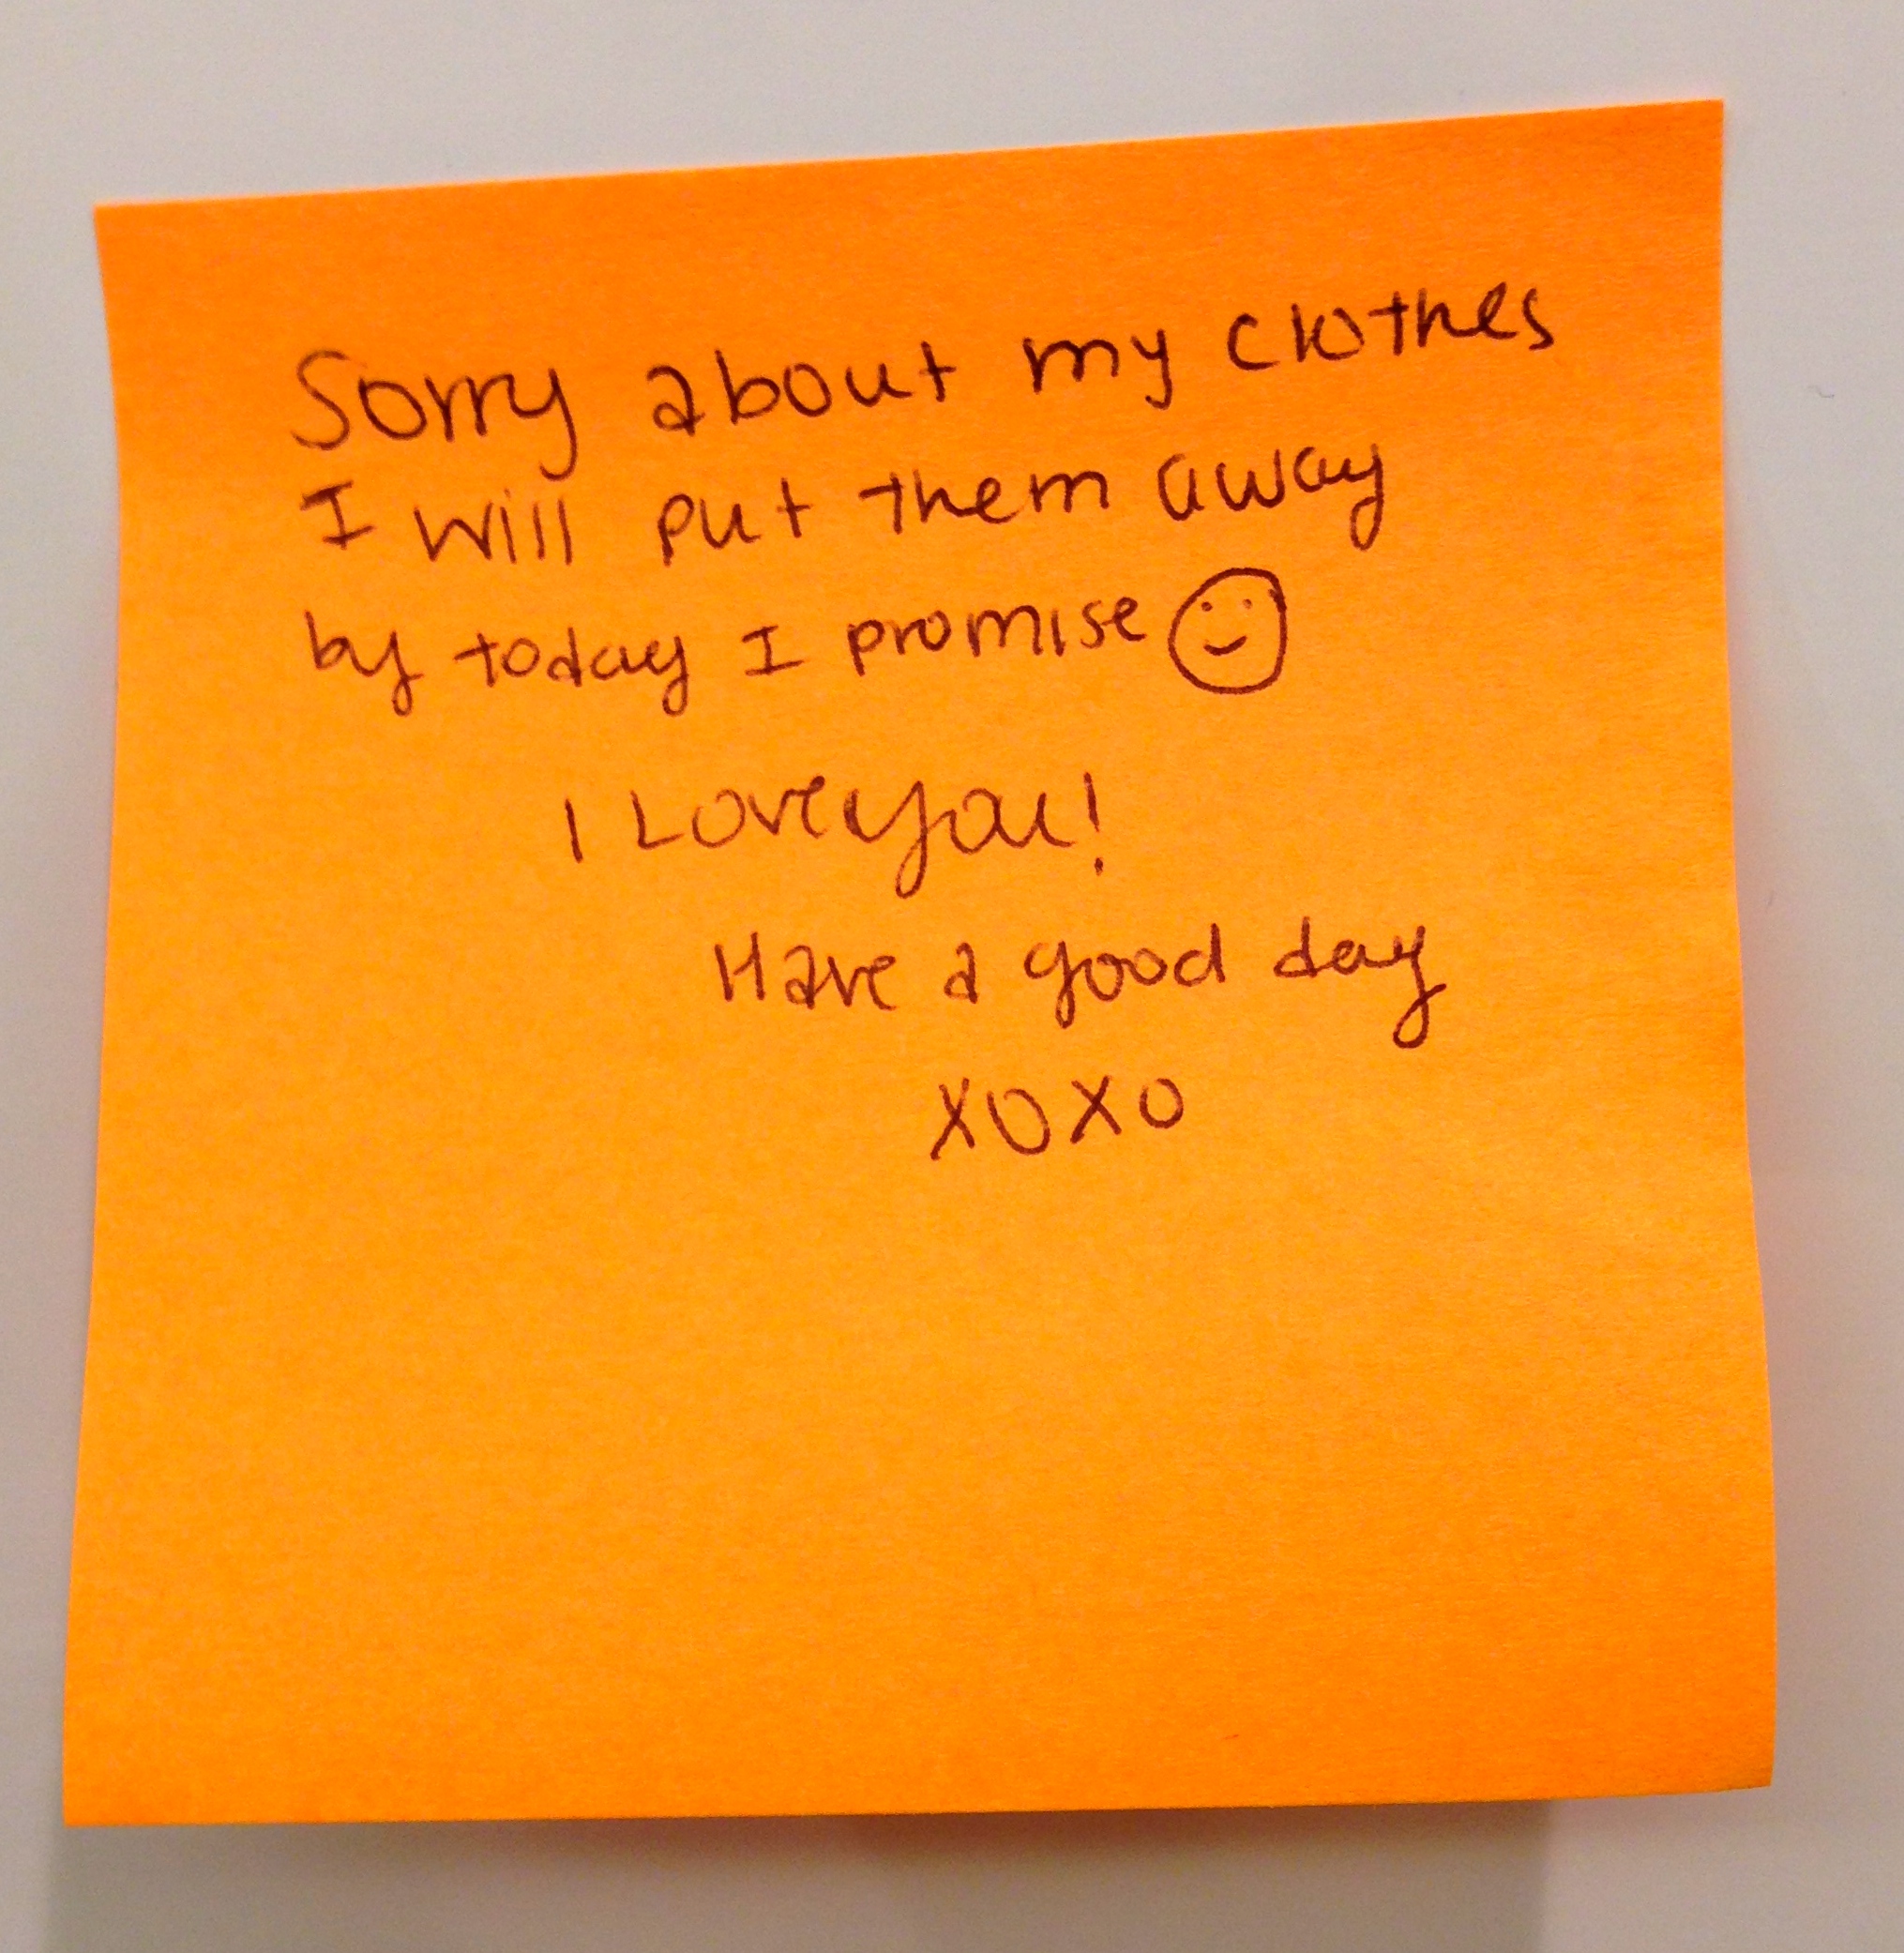 Sorry about my clothes
I will put them away
by today I promise
I Love you!
Have a good day
XOXO